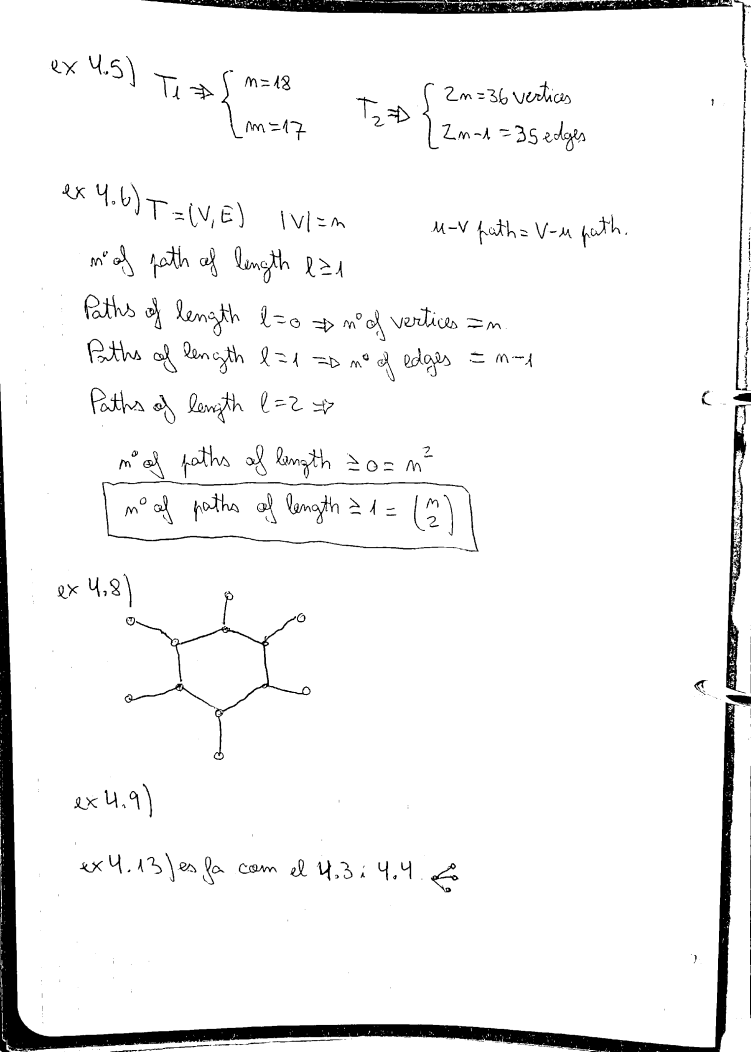 ex 4.5) T1 ⇒ { n=18 m=17 T2 ⇒ { 2n=36 vertices 2n-1=35 edges
ex 4.6) T=(V,E) |V|=n u-v path = v-u path.
nº of path of length l≥1
Paths of length l=0 ⇒ nº of vertices = n
Paths of length l=1 ⇒ nº of edges = n-1
Paths of length l=2 ⇒
nº of paths of length ≥0 = n²
nº of paths of length ≥1 = (n 2)
ex 4.8)
ex 4.9)
ex 4.13) es fa com el 4.3 i 4.4